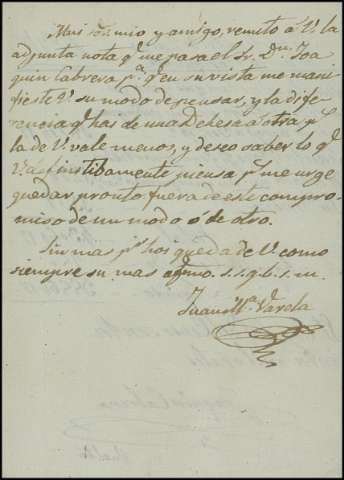 Mui sor. mio y amigo, remito á V. la
adjunta nota qe. me pasa el Sr. Dn. Joa
quin Cabrera pa. qe. en su vista me mani
fieste V. su modo de pensar, y la dife
rencia qe. hai de una Dehesa á otra pr.
la de V. vale menos, y deseo saber lo qe.
V. definitibamente piensa pr. me urge
quedar pronto fuera de este compro-
miso de un modo ó de otro.
Sin mas pr. hoi queda de V. como
siempre su mas afmo. s. s. q. b. s. m.
Juan Ma. Varela